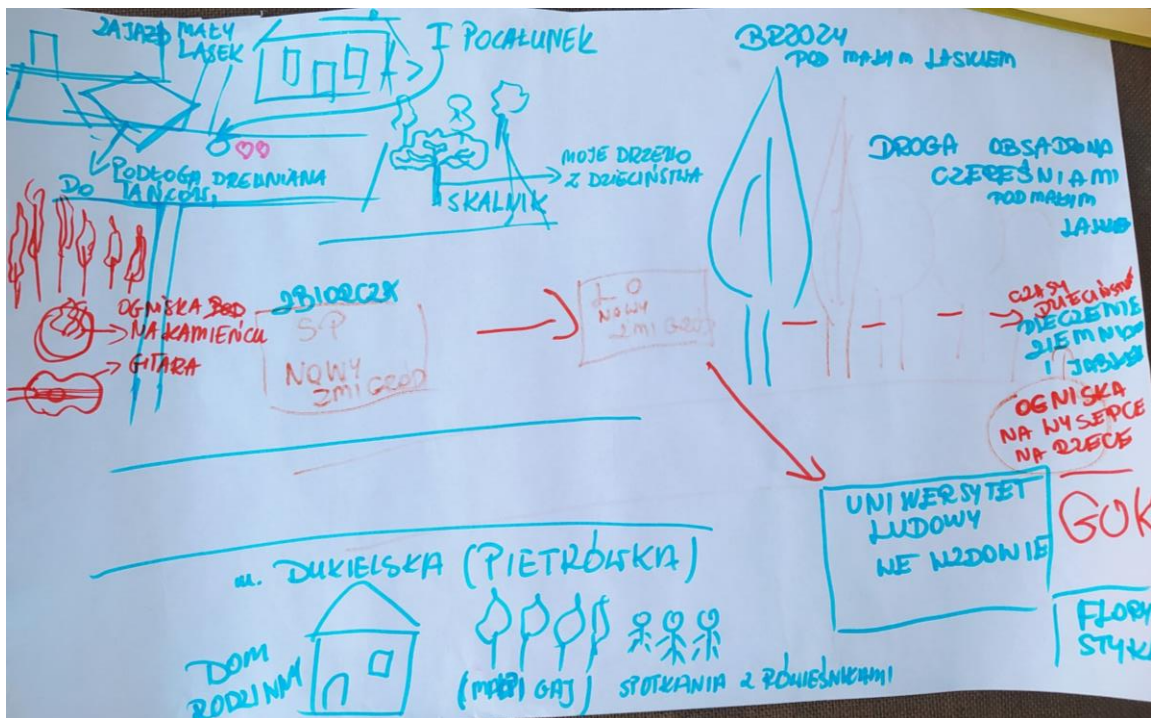 ZAJAZD MAŁY
LASEK
I POCAŁUNEK
BRZOZY
POD MAŁYM LASKIEM
MOJE DRZEWO
Z DZIECIŃSTWA
SKALNIK
PODŁOGA DREWNIANA
DO TAŃCÓW.
DROGA OBSADZONA
CZEREŚNIAMI
POD MAŁYM
OGNISKA POD
NA KAMIEŃCU
GITARA
ZBIORCZA
SP
NOWY
ŻMIGRÓD
LO
NOWY
ŻMIGRÓD
CZASY
DZIECIŃSTWA
PIECZENIE
ZIEMNIAKÓW
I JABŁEK
OGNISKA
NA WYSEPCE
NA RZECE
UNIWERSYTET
LUDOWY
WE WZDOWIE
GOK
FLORY
STYKA
ul. DUKIELSKA (PIETRÓWKA)
DOM
RODZINNY
(MAŁPI GAJ) SPOTKANIA Z RÓWIEŚNIKAMI